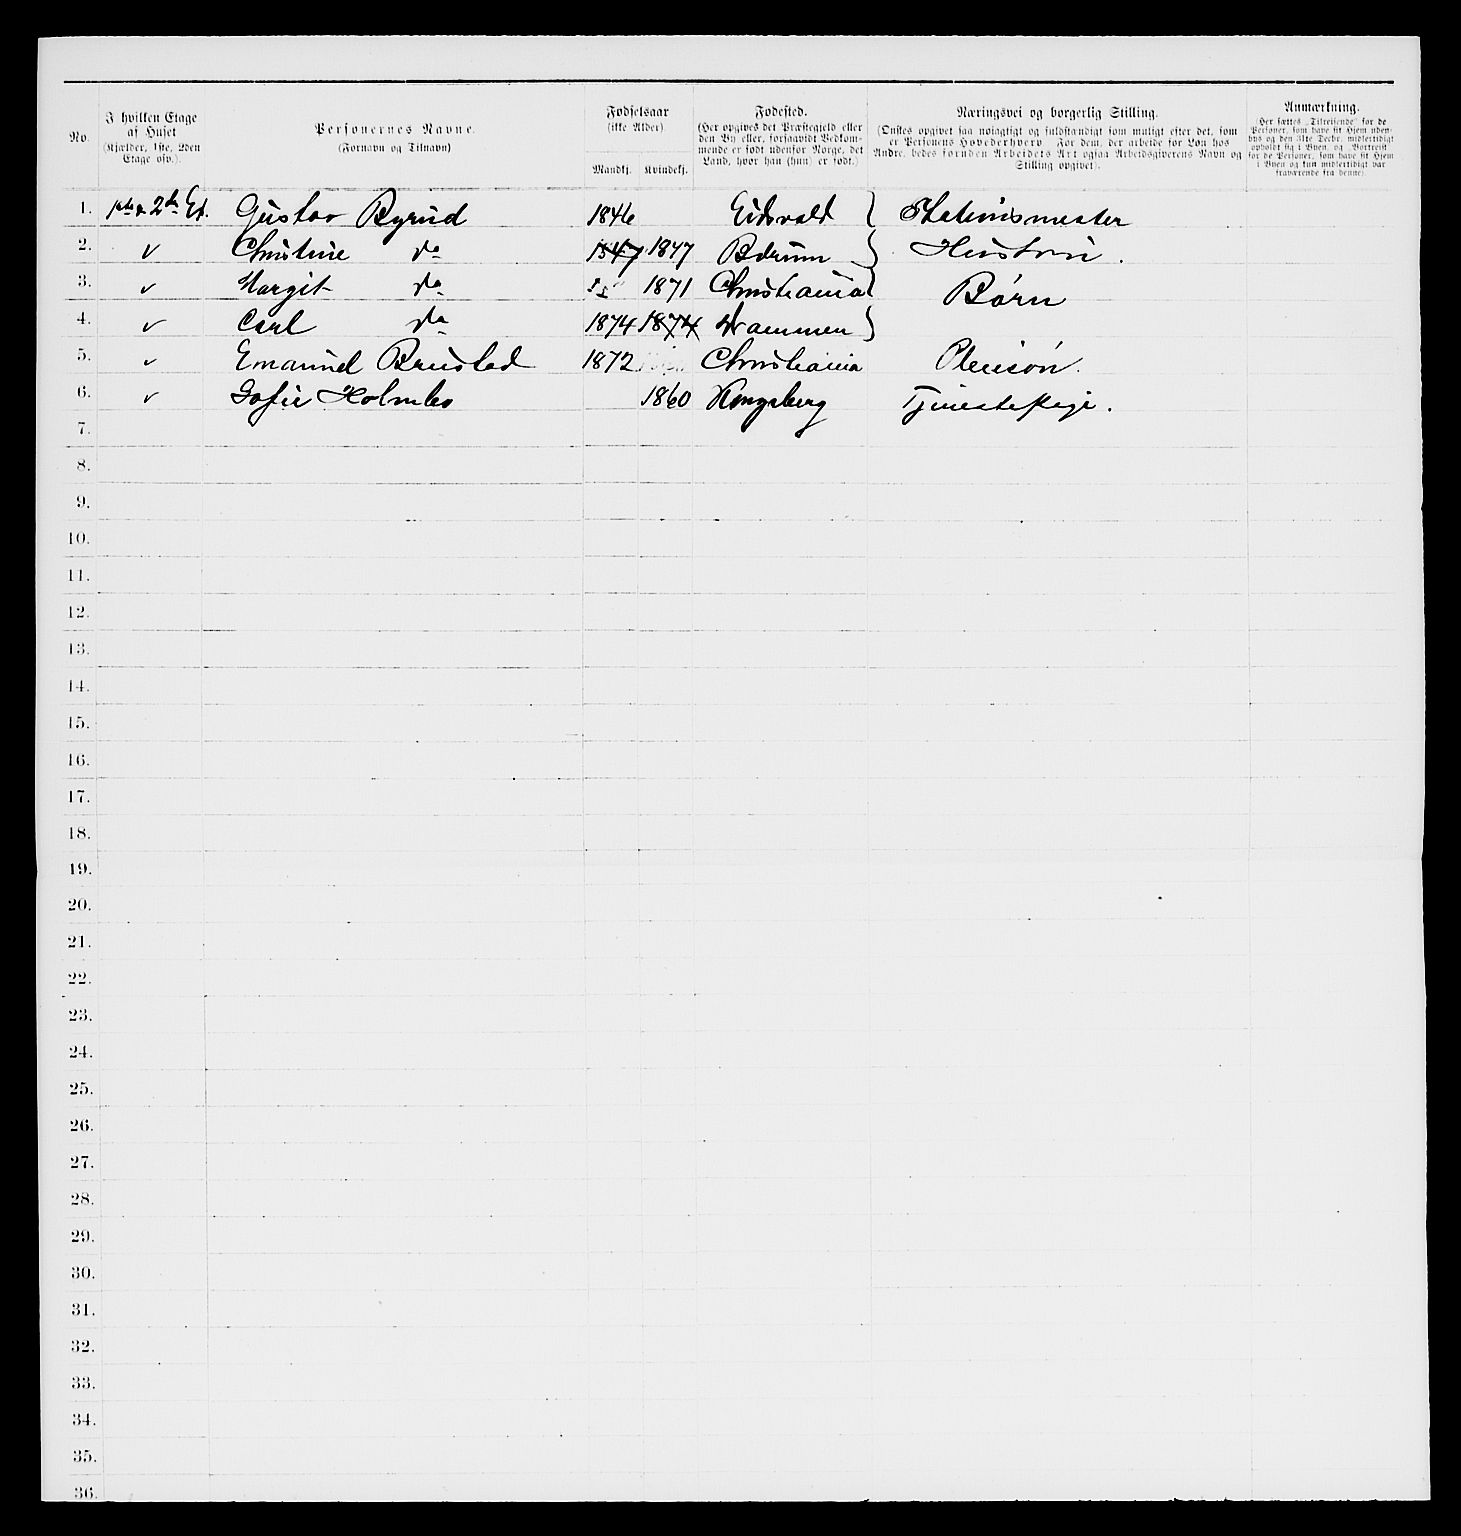 No.
I hvilken Etage af Huset (Kjælder, 1ste, 2den Etage osv.).
Personernes Navne. (Fornavn og Tilnavn)
Fødselsaar (ikke Alder).
Mandkj. Kvindekj.
Fødested. (Her opgives det Præstegjeld eller den By eller, forsaavidt Vedkommende er født udenfor Norge, det Land, hvor han (hun) er født.)
Næringsvei og borgerlig Stilling. (Ønskes opgivet saa nøiagtigt og fuldstændigt som muligt efter det, som er Personens Hovederhverv. For dem, der arbeide for Løn hos Andre, bedes foruden Arbeidets Art ogsaa Arbeidsgiverens Navn og Stilling opgivet).
Anmærkning. (Her sættes „Tilreisende“ for de Personer, som have sit Hjem udenbys og den 31te Decbr. midlertidigt opholdt sig i Byen, og „Bortreist“ for de Personer, som have sit Hjem i Byen og kun midlertidigt var fraværende fra denne).
1. 1ste & 2den Et. Gustav Byrud 1846 Eidsvold } Stationsmester
2. v Christine do 1847 1847 Bærum } Hustru.
3. v Margit do 1871 Christiania } Børn
4. v Carl do 1874 1874 Drammen }
5. v Emanuel Brustad 1872 Christiania Pleiesøn.
6. v Sofie Holmbo 1860 Kongsberg Tjenestepige.
7.
8.
9.
10.
11.
12.
13.
14.
15.
16.
17.
18.
19.
20.
21.
22.
23.
24.
25.
26.
27.
28.
29.
30.
31.
32.
33.
34.
35.
36.